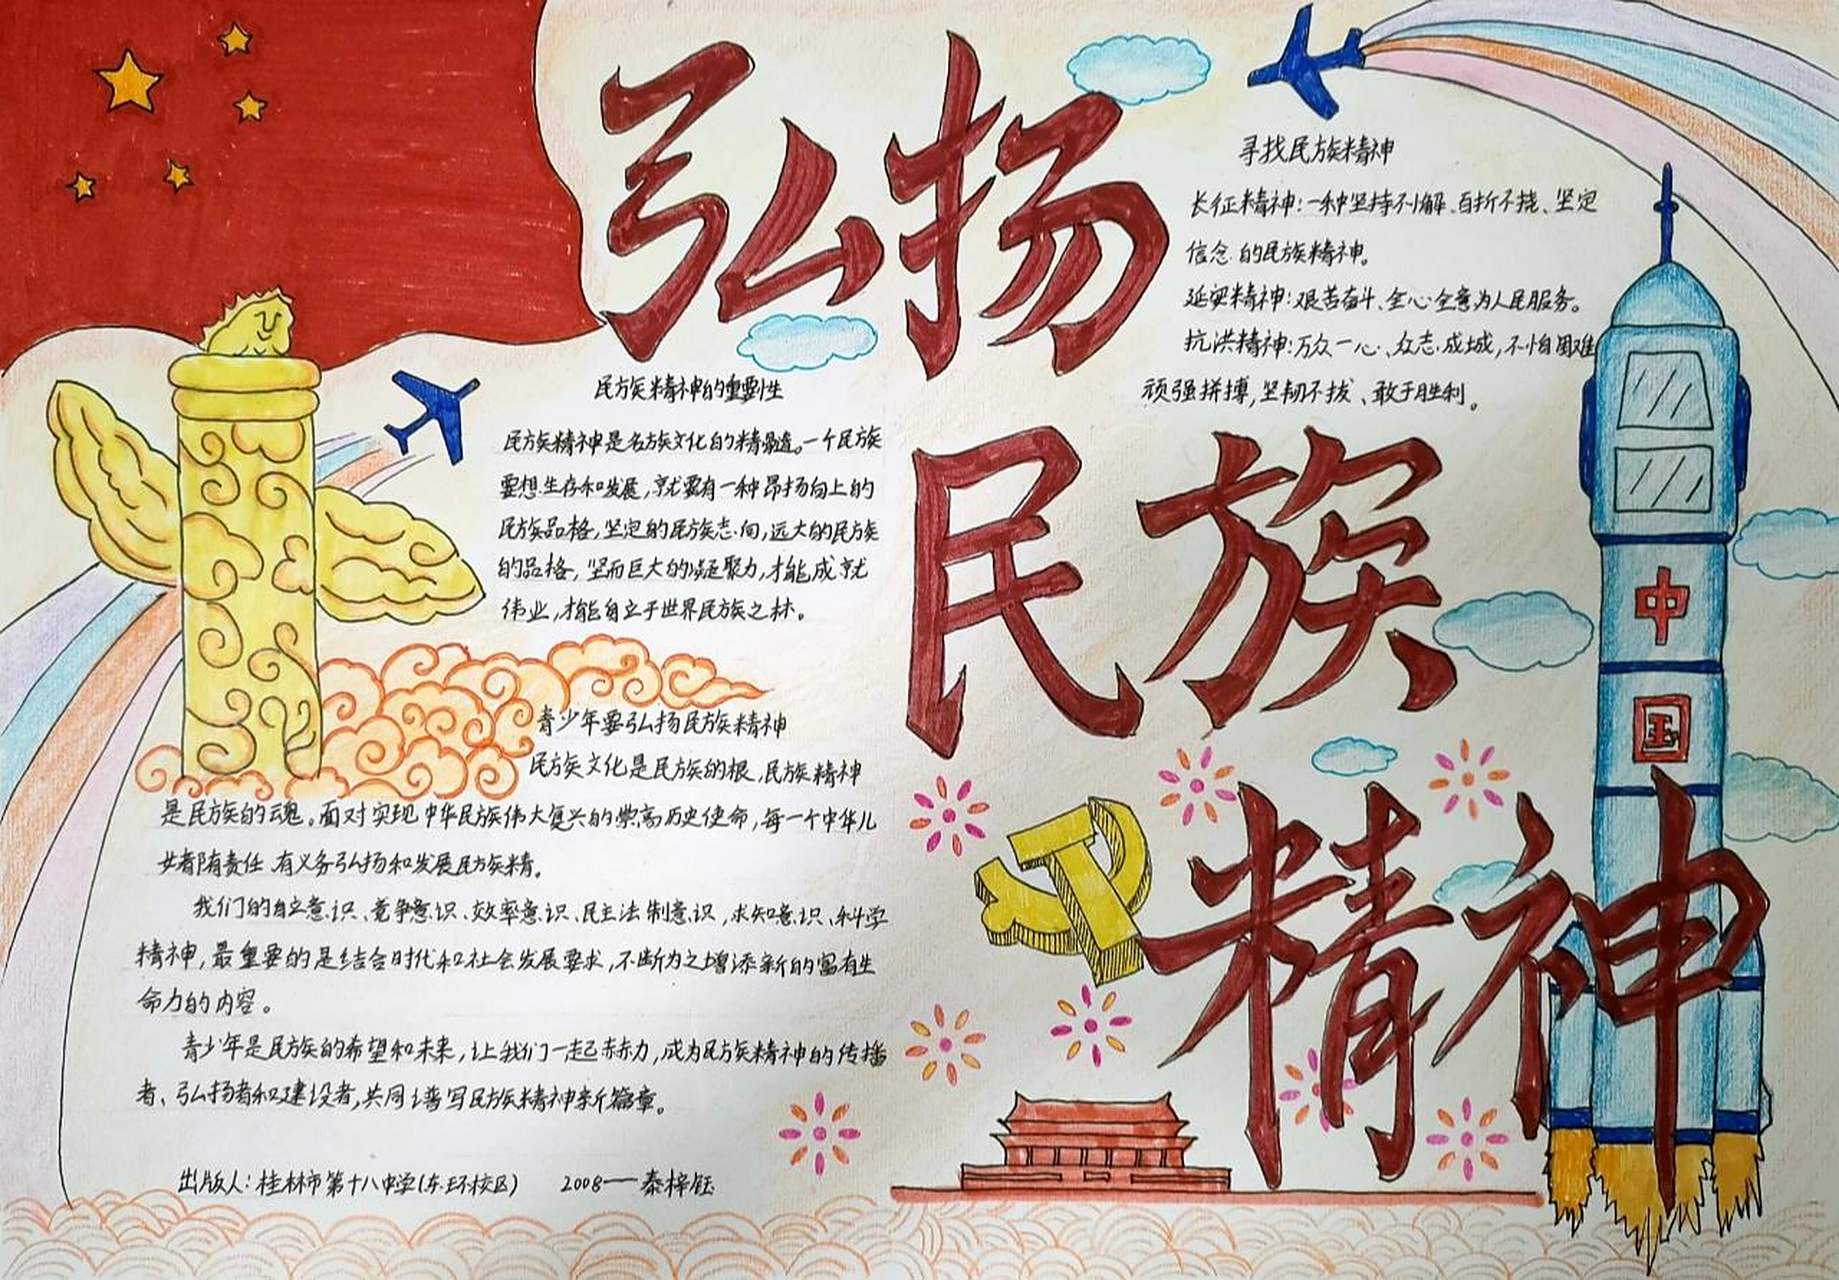 弘扬
民族
精神
寻找民族精神
长征精神:一种坚持不懈、百折不挠、坚定
信念的民族精神。
延安精神:艰苦奋斗、全心全意为人民服务。
抗洪精神:万众一心、众志成城,不怕困难
顽强拼搏,坚韧不拔、敢于胜利。
民族精神的重要性
民族精神是名族文化的精髓。一个民族
要想生存和发展,就要有一种昂扬向上的
民族品格,坚定的民族志向,远大的民族
的品格,坚而巨大的凝聚力,才能成就
伟业,才能自立于世界民族之林。
青少年要弘扬民族精神
民族文化是民族的根,民族精神
是民族的魂。面对实现中华民族伟大复兴的崇高历史使命,每一个中华儿
女都有责任、有义务弘扬和发展民族精。
我们的自立意识、竞争意识、效率意识、民主法制意识,求知意识、科学
精神,最重要的是结合时代和社会发展要求,不断为之增添新的富有生
命力的内容。
青少年是民族的希望和未来,让我们一起努力,成为民族精神的传播
者、弘扬者和建设者,共同谱写民族精神新篇章。
出版人:桂林市第十八中学(东环校区) 2008——秦梓钰
中
国